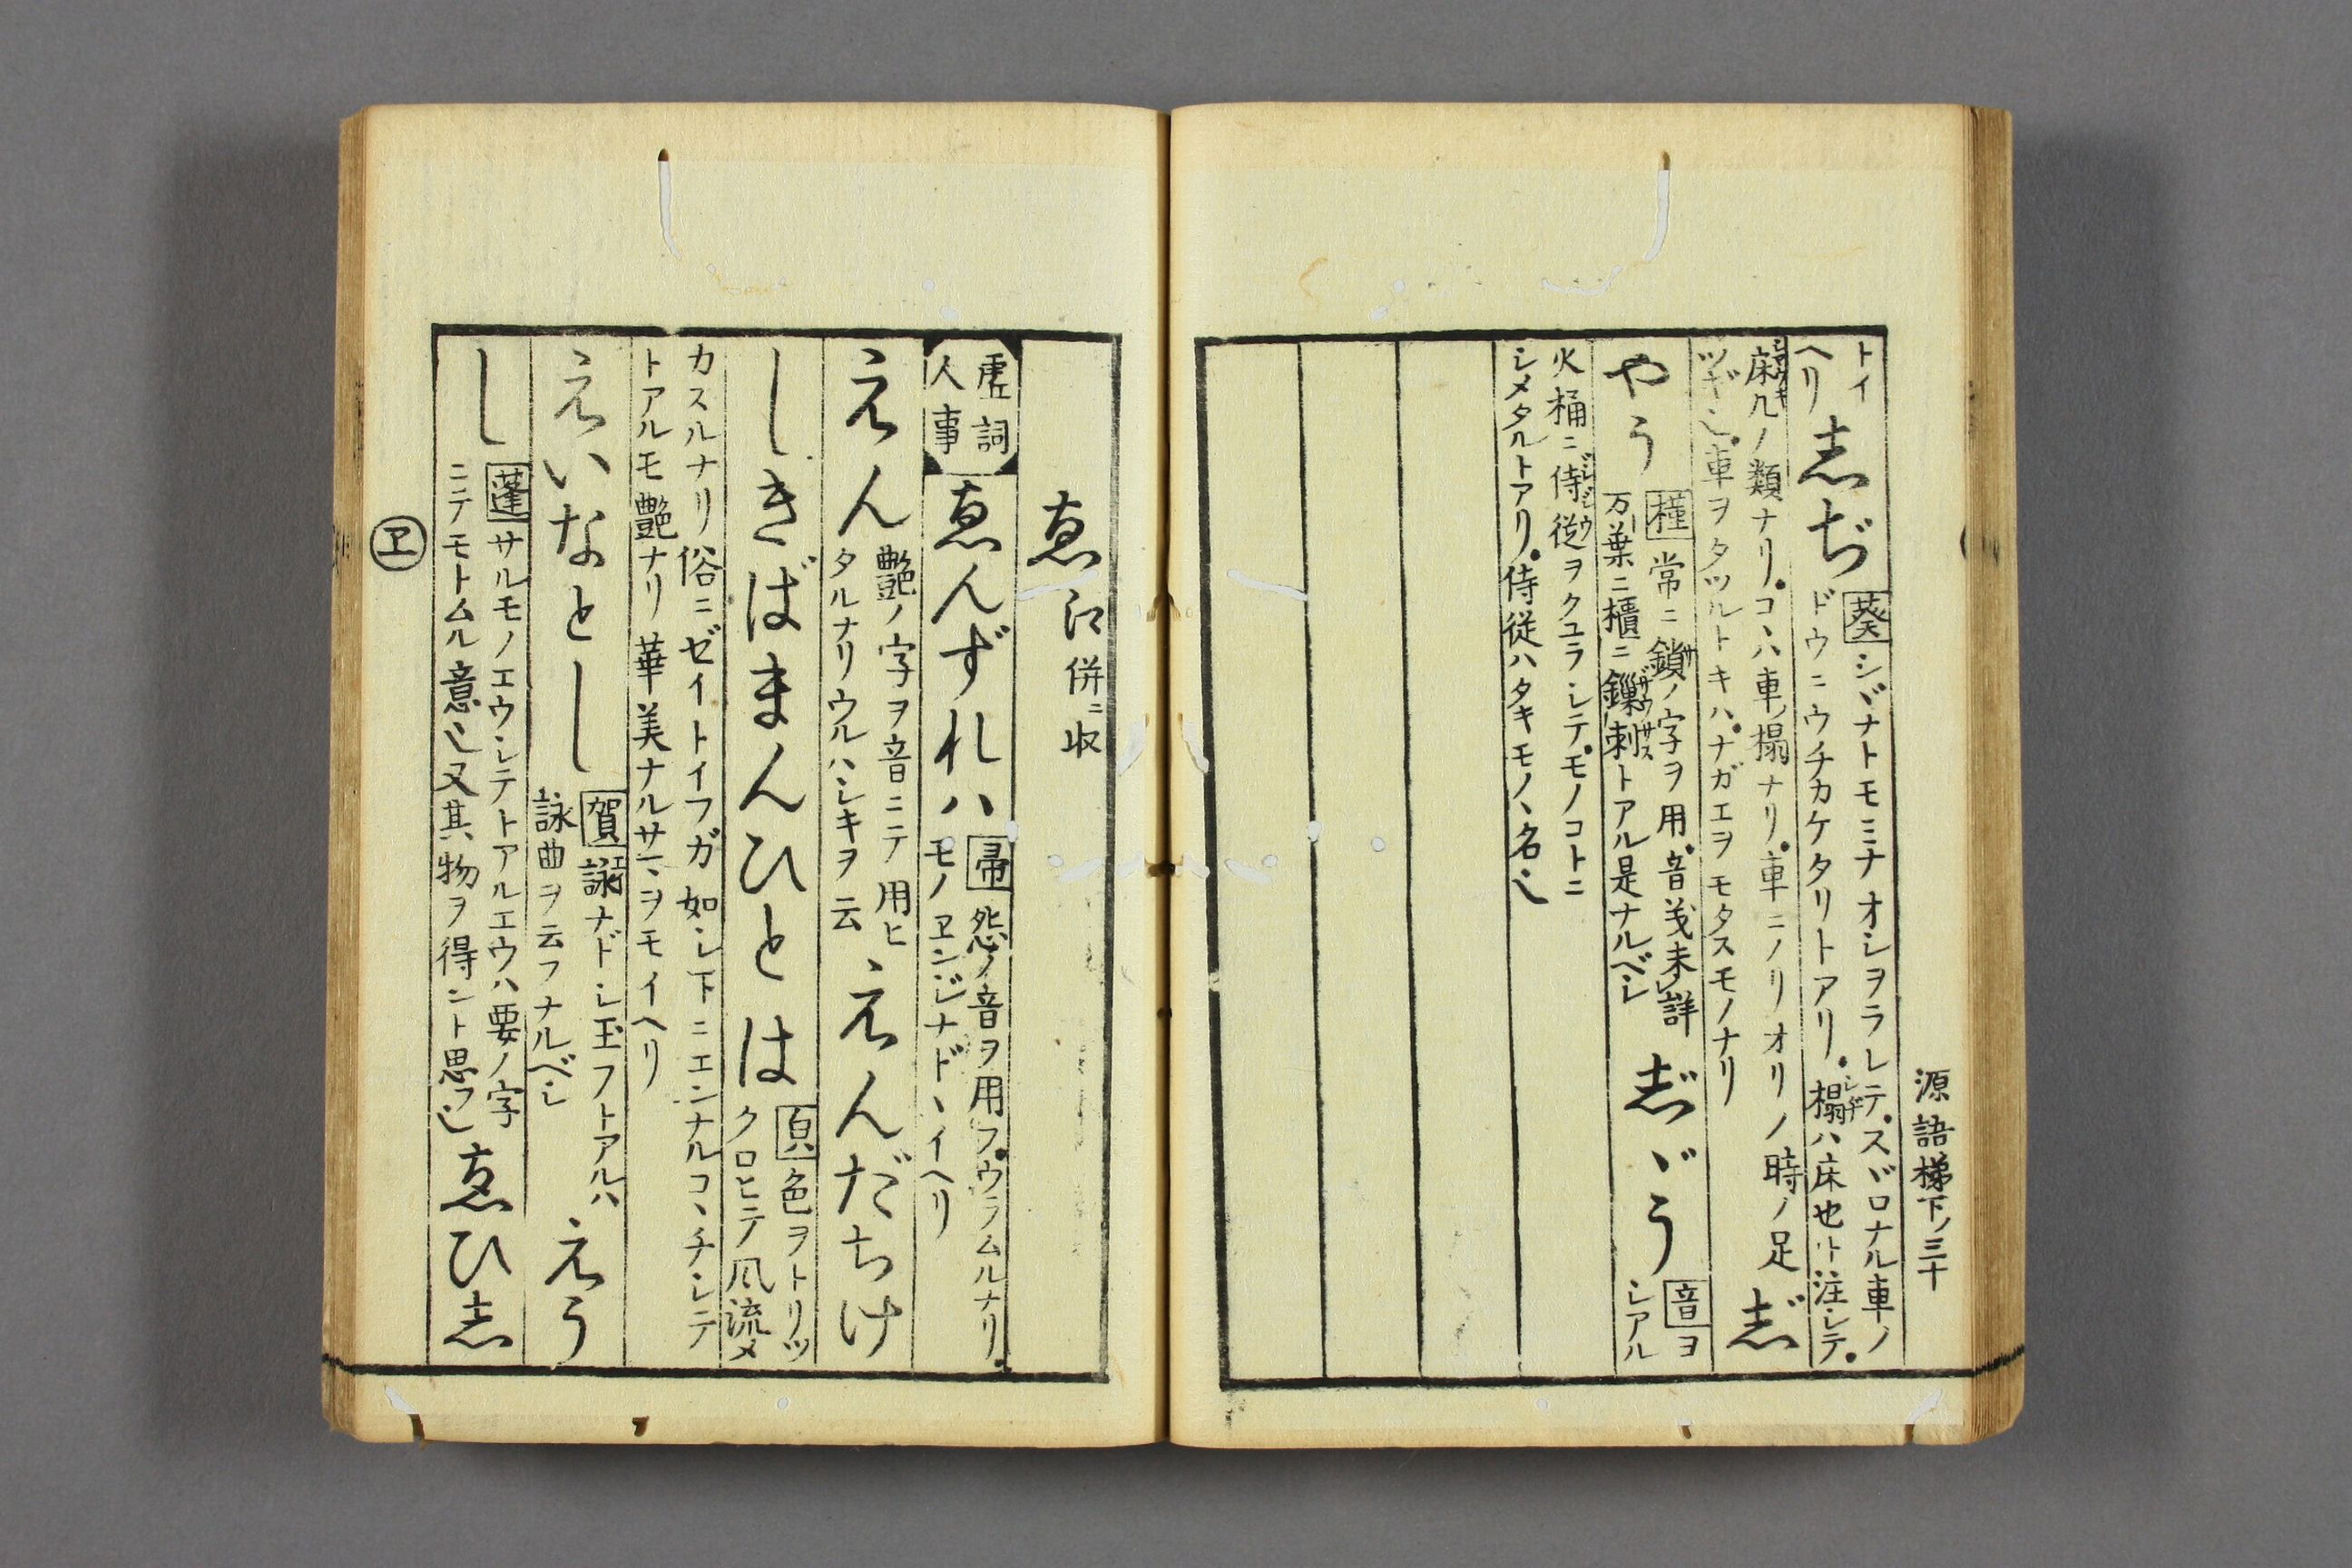 源語梯下ノ三十
トイ
ヘリ
志ぢ
葵シヾナトモミナオシヲラレテ。スヾロナル車ノ
ドウニウチカケタリトアリ。榻ハ床也ト注シテ。
床几ノ類ナリ。コヽハ車ノ榻ナリ。車ニノリオリノ時ノ足
ツギ也。車ヲタツルトキハ。ナガエヲモタスモノナリ
志゛
やう
槿常ニ鎖ノ字ヲ用。音義未ダ詳
万葉ニ櫃ニ鏁刺トアル是ナルベシ
志゛ヾう
音ヲ
シアル
火桶ニ侍従ヲクユラシテ。モノコトニ
シメタルトアリ。侍従ハタキモノヽ名也
ゑ
江併ニ収
虚詞
人事
ゑんずれハ
帚怨ノ音ヲ用フ。ウラムルナリ。
モノヱンジナドヽイヘリ
えん
艶ノ字ヲ音ニテ用ヒ
タルナリウルハシキヲ云
えんだちけ
しきばまんひとは
頁色ヲトリツ
クロヒテ風流メ
カスルナリ俗ニゼイトイフガ如シ下ニエンナルコヽチシテ
トアルモ艶ナリ華美ナルサマヲモイヘリ
えいなとし
賀詠ナドシ玉フトアルハ
詠曲ヲ云フナルベシ
えう
し
蓬サルモノエウシテトアルエウハ要ノ字
ニテモトムル意也又其物ヲ得ント思フ也
ゑひ志
ヱ